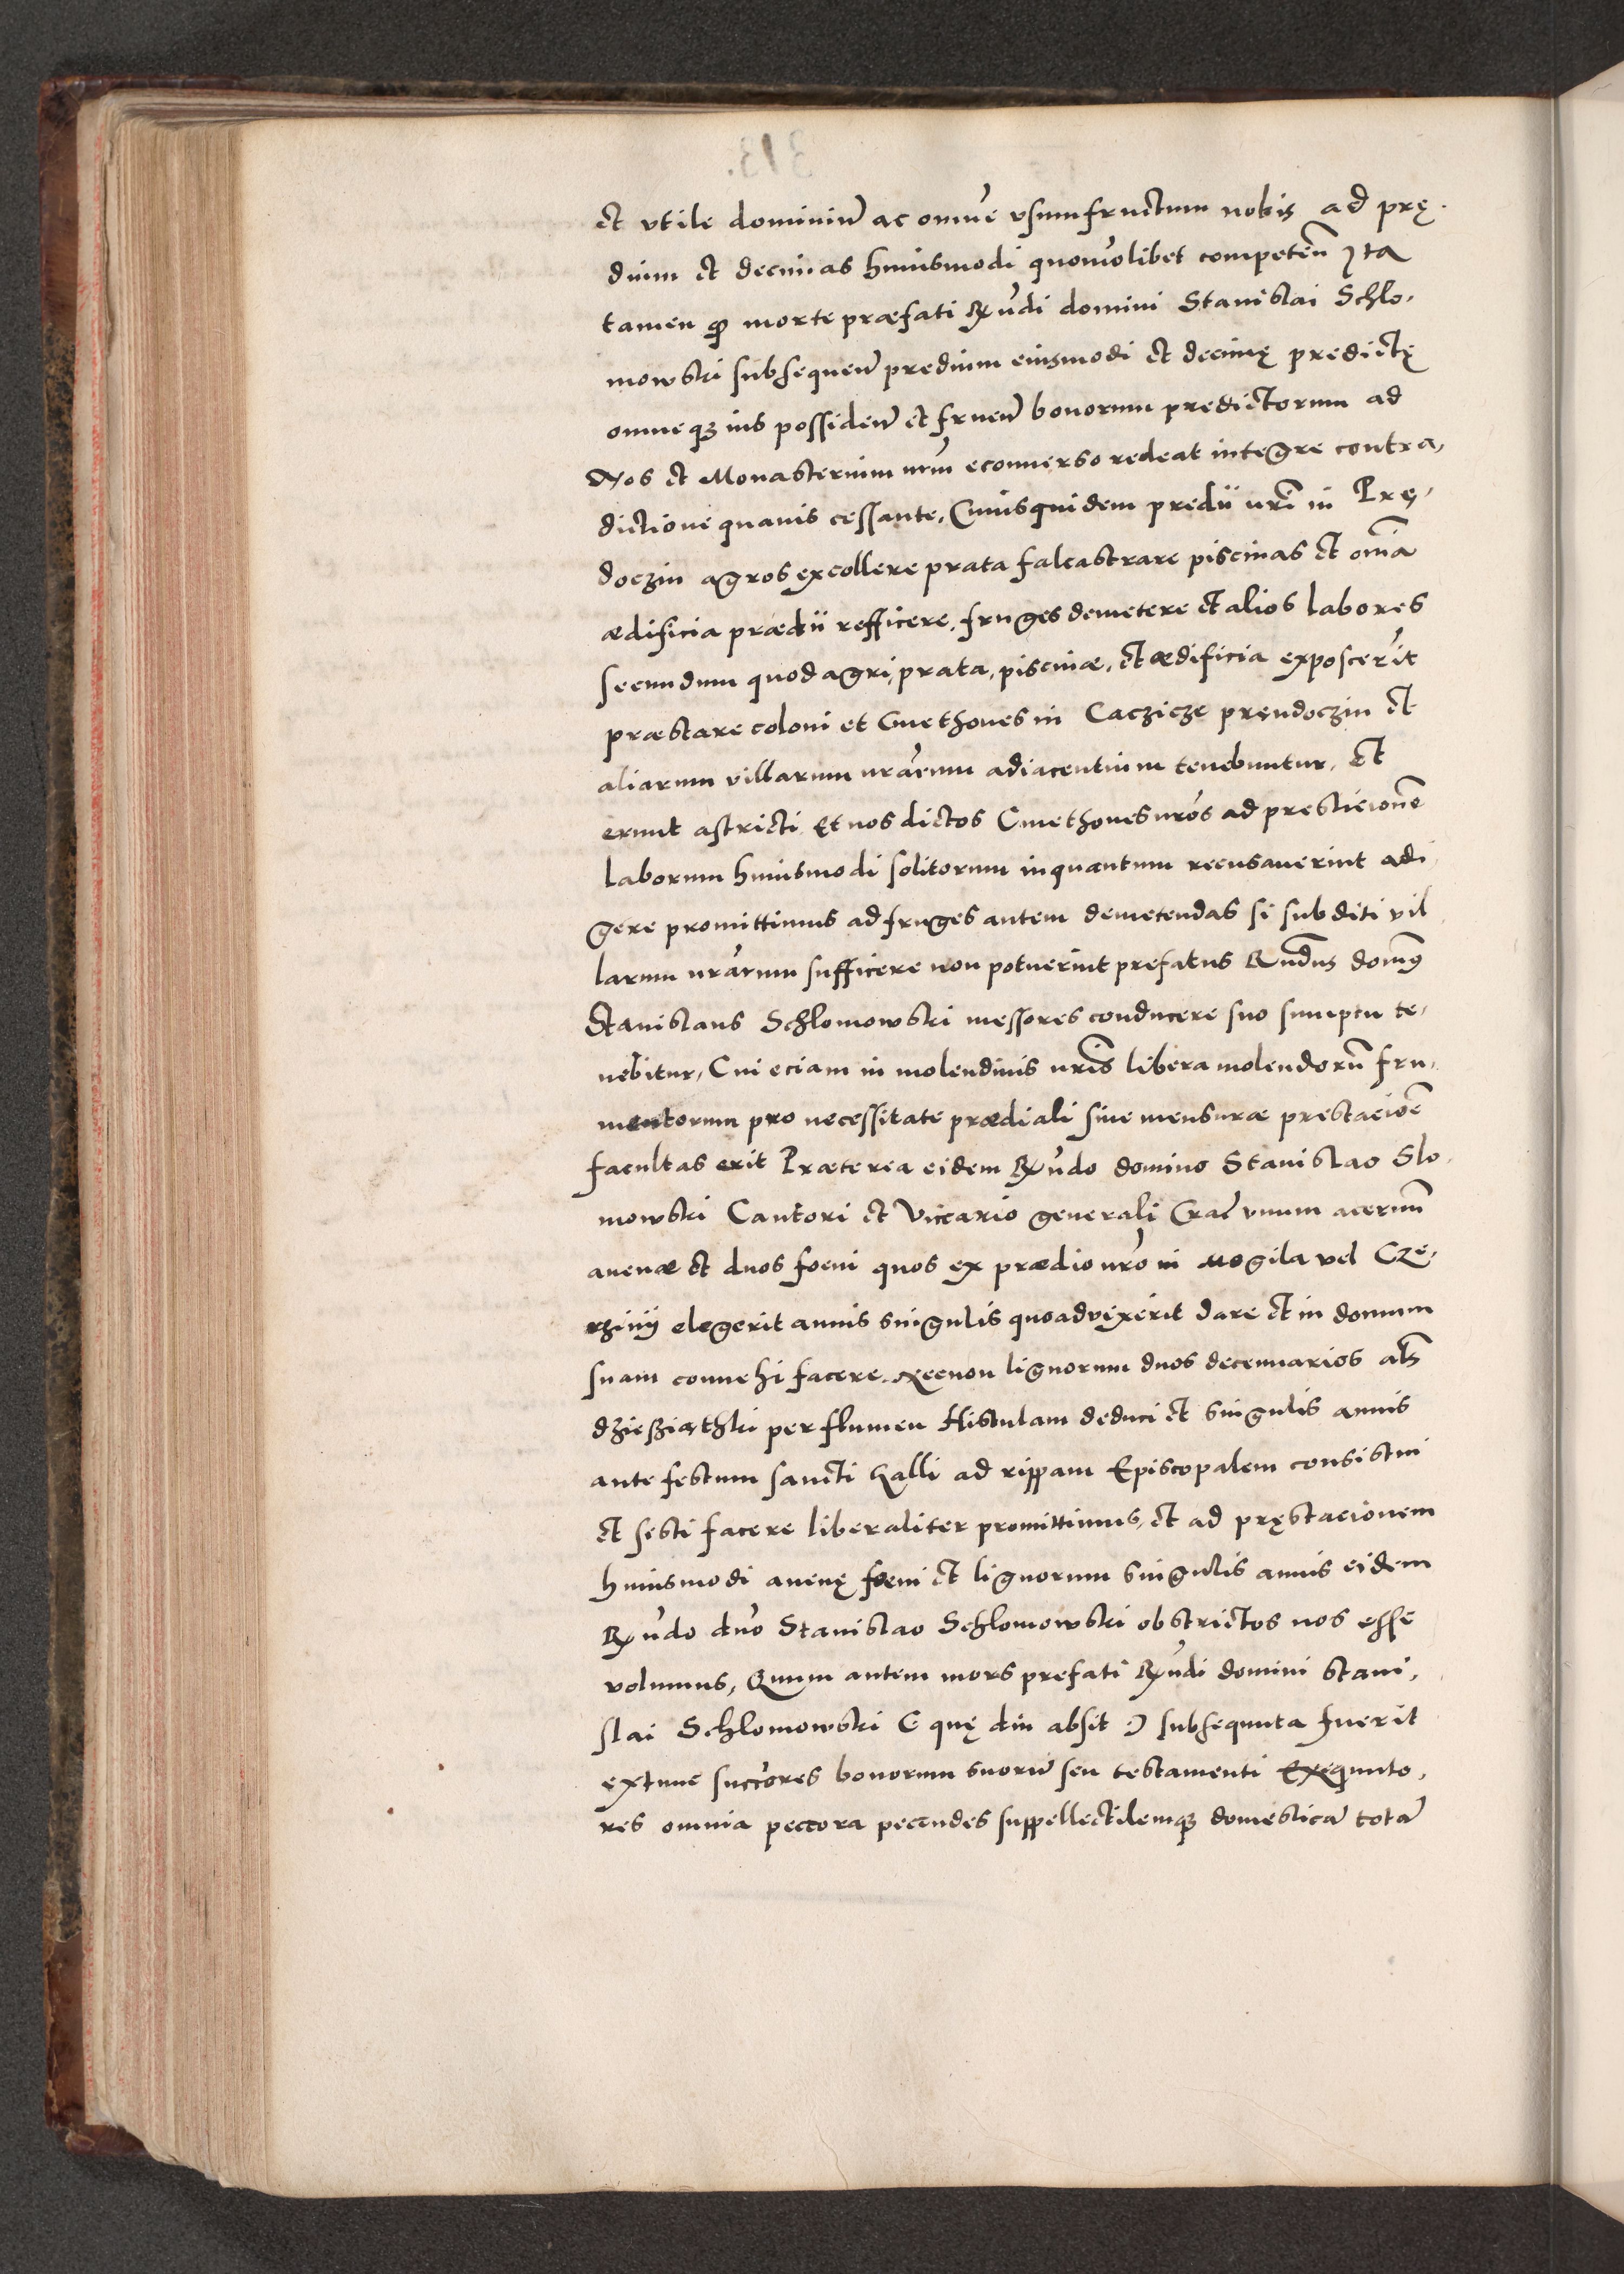 et vtile dominiū ac omne vsumfructum nobis ad prę-
dium et decimas huiusmodi quomōlibet competeñ Ita
tamen ꝙ morte præfati Rūdi domini Stanislai Schlo-
mowski subsequeñ predium eiusmodi et decimę predictę
omneqȝ ius possideñ et frueñ bonorum predictorum ad
Nos et Monasterium nr̄m econuerso redeat integre contra-
dictione quauis cessante, Cuiusquidem predii nr̄i in Prę-
doczin agros excollere prata falcastrare piscinas et om̄ia
ædificia prædii refficere, fruges demetere et alios labores
secundum quod agri, prata, piscinæ, et ædificia exposcerīt
præstare coloni et Cmethones in Caczicze prendoczin et
aliarum villarum nr̄arum adiacentium tenebuntur, Et
erunt astricti Et nos dictos Cmethones nr̄os ad presticionē
laborum huiusmodi solitorum inquantum recusauerint adi
gere promittimus ad fruges autem demetendas si subditi vil
larum nr̄arum sufficere non potuerint prefatus Rn̄dus domꝰ
Stanislaus Schlomowski messores conducere suo sumptu te-
nebitur, Cui eciam in molendinis nr̄is libera molendorū fru-
mentorum pro necessitate prædiali sine mensuræ prestacioē
facultas erit Præterea eidem Rūdo domino Stanislao Slo-
mowski Cantori et Vicario generali Crac̄ vnum aceruū
auenæ et duos foeni quos ex prædio nr̄o in Mogila vel Cze-
rzinij elegerit annis singulis quoadvixerit dare et in domum
suam connehi facere. Necnon lignorum duos decennarios als̄
dzieszięthki per flumen Histulam deduci et singulis annis
ante festum sancti Galli ad rippam Episcopalem consistui
et sesti facere liberaliter promittimus, et ad pręstacionem
huiusmodi auenę foeni et lignorum singulis annis eidem
Rūdo dn̄o Stanislao Schlomowski obstrictos nos esse
volumus, Quum autem mors prefati Rūdi domini Stani-
slai Schlomowski (: quę diu absit :) subsequuta fuerit
extunc succ̄ores bonorum suorū seu testamenti Exequuto-
res omnia peccora peccudes suppellectilemqȝ domesticā totā